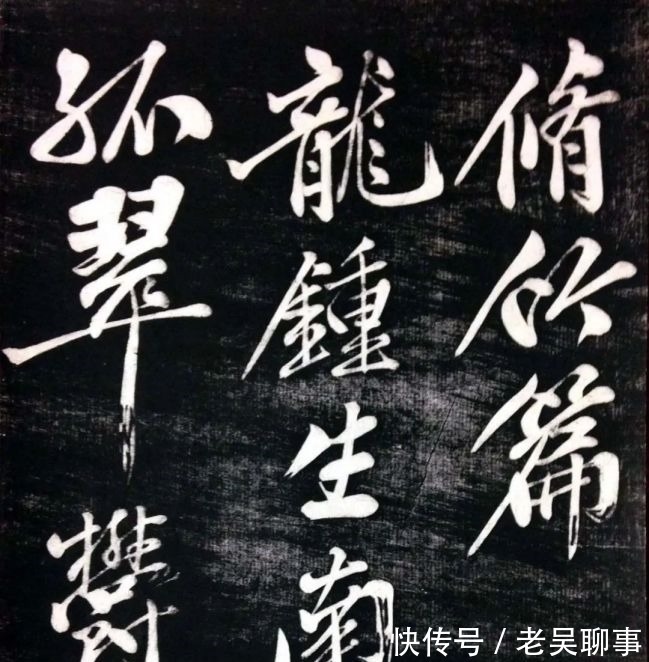 脩竹篇
龍鍾生南
孤翠鬱
快传号 / 老吴聊事